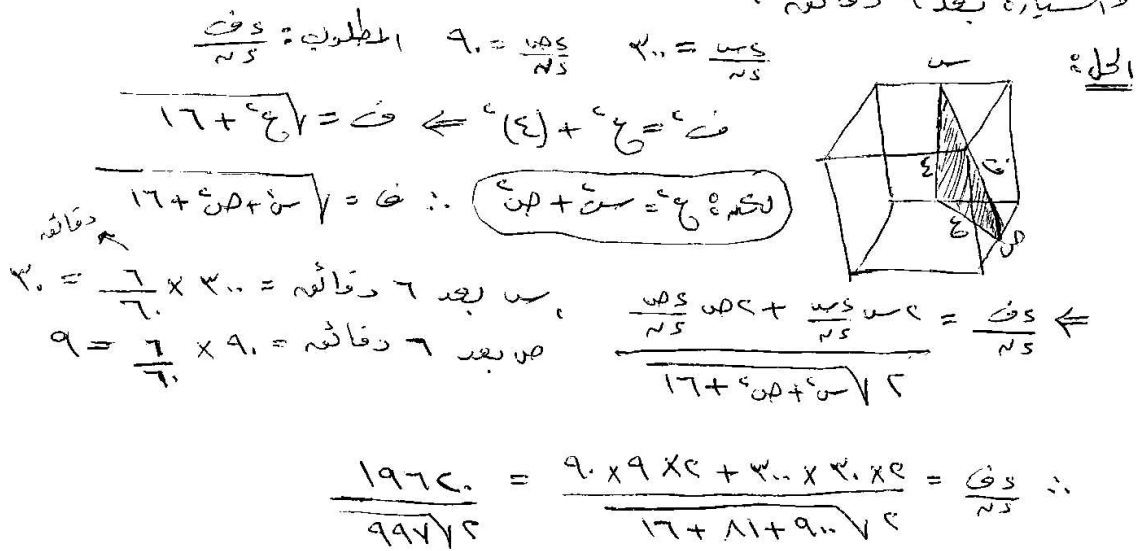 السيارة بعد ٦ دقائق .
الحل:
دس/دن = ٣٠٠ دص/دن = ٩٠ المطلوب: دف/دن
ف² = ع² + (٤)² ⇐ ف = √(ع² + ١٦)
لكن: ع² = س² + ص² ∴ ف = √(س² + ص² + ١٦)
⇐ دف/دن = (٢س دس/دن + ٢ص دص/دن) / (٢√(س² + ص² + ١٦))
س بعد ٦ دقائق = ٣٠٠ × ٦/٦٠ = ٣٠
دقائق
ص بعد ٦ دقائق = ٩٠ × ٦/٦٠ = ٩
س
٤
ف
ع
ص
∴ دف/دن = (٢×٣٠×٣٠٠ + ٢×٩×٩٠) / (٢√(٩٠٠ + ٨١ + ١٦)) = ١٩٦٢٠ / (٢√٩٩٧)